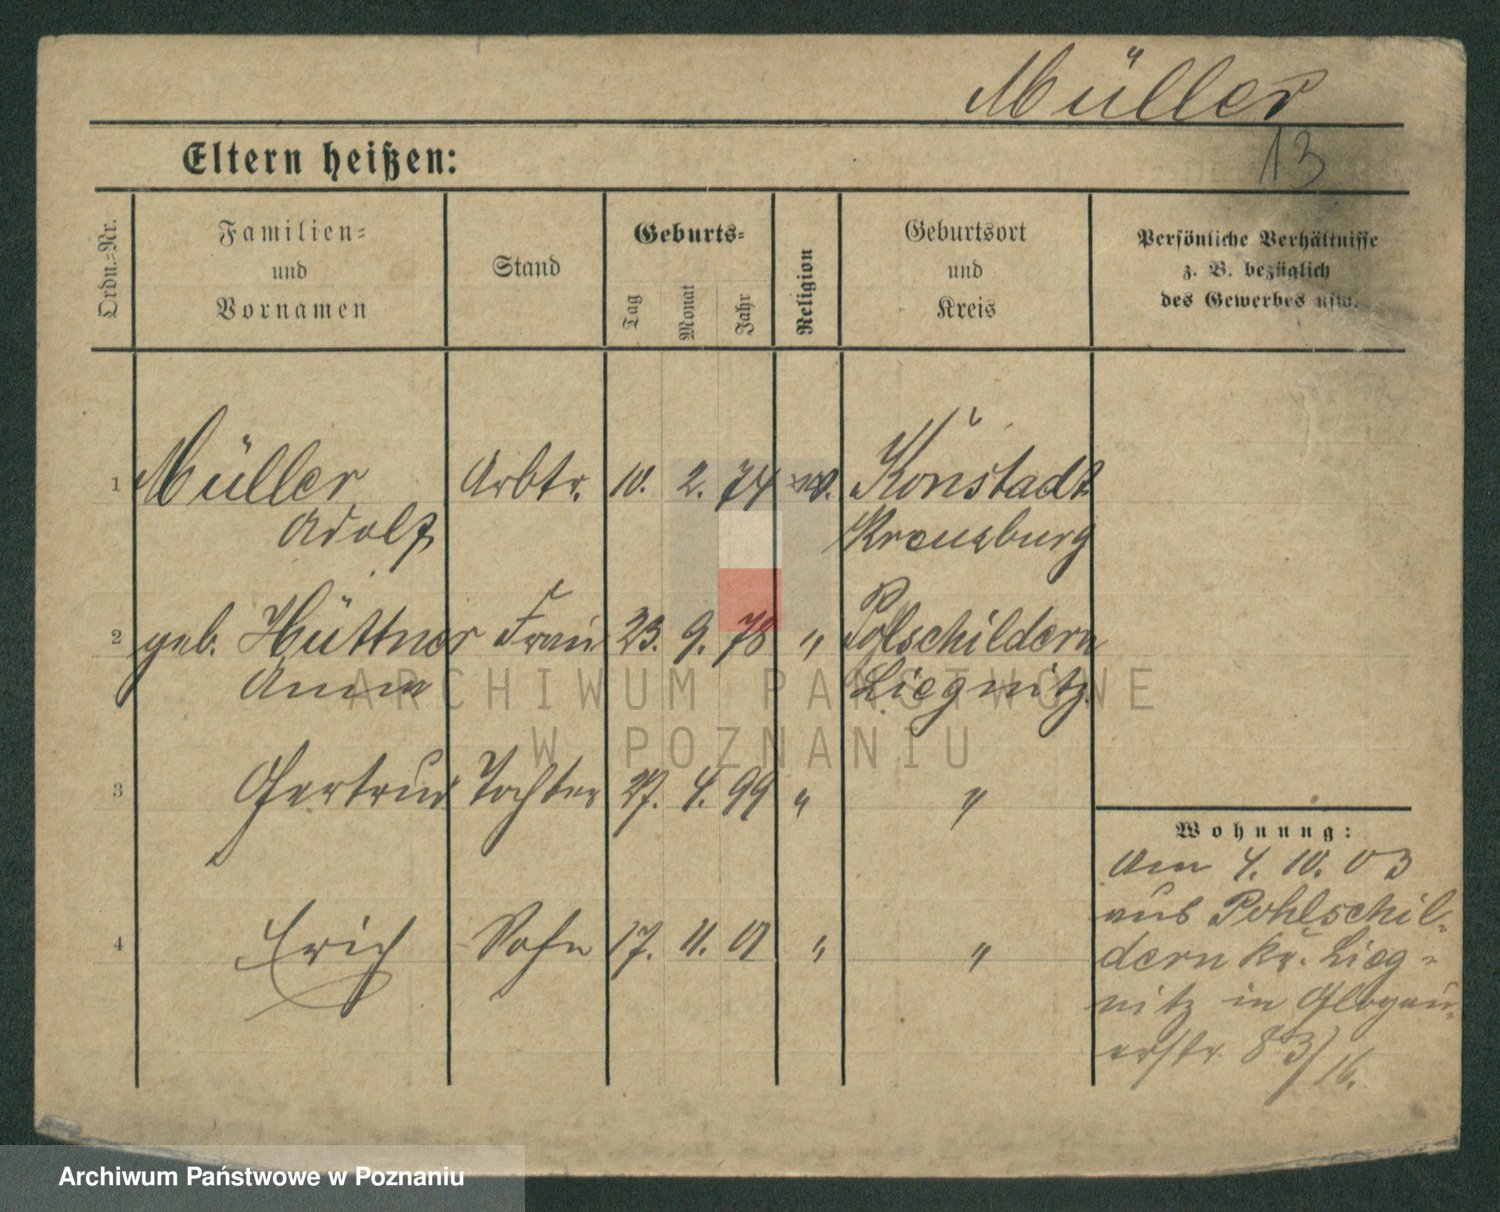 Müller
13
Eltern heißen:
Ordn.=Nr.
Familien=
und
Vornamen
Stand
Geburts=
Tag
Monat
Jahr
Religion
Geburtsort
und
Kreis
Persönliche Verhältnisse
z. B. bezüglich
des Gewerbes usw.
1 Müller Arbtr. 10. 2. 74 ev. Konstadt
Adolf Kreuzburg
2 geb. Hüttner Frau 23. 9. 78 " Pohlschildern
Anna Liegnitz
3 Gertrud Tochter 27. 4. 99 " "
4 Erich Sohn 17. 11. 01 " "
Wohnung:
Am 4. 10. 03
aus Pohlschil-
dern Kr. Lieg-
nitz in Glogau-
erstr. 83/16.
ARCHIWUM PAŃSTWOWE
W POZNANIU
Archiwum Państwowe w Poznaniu